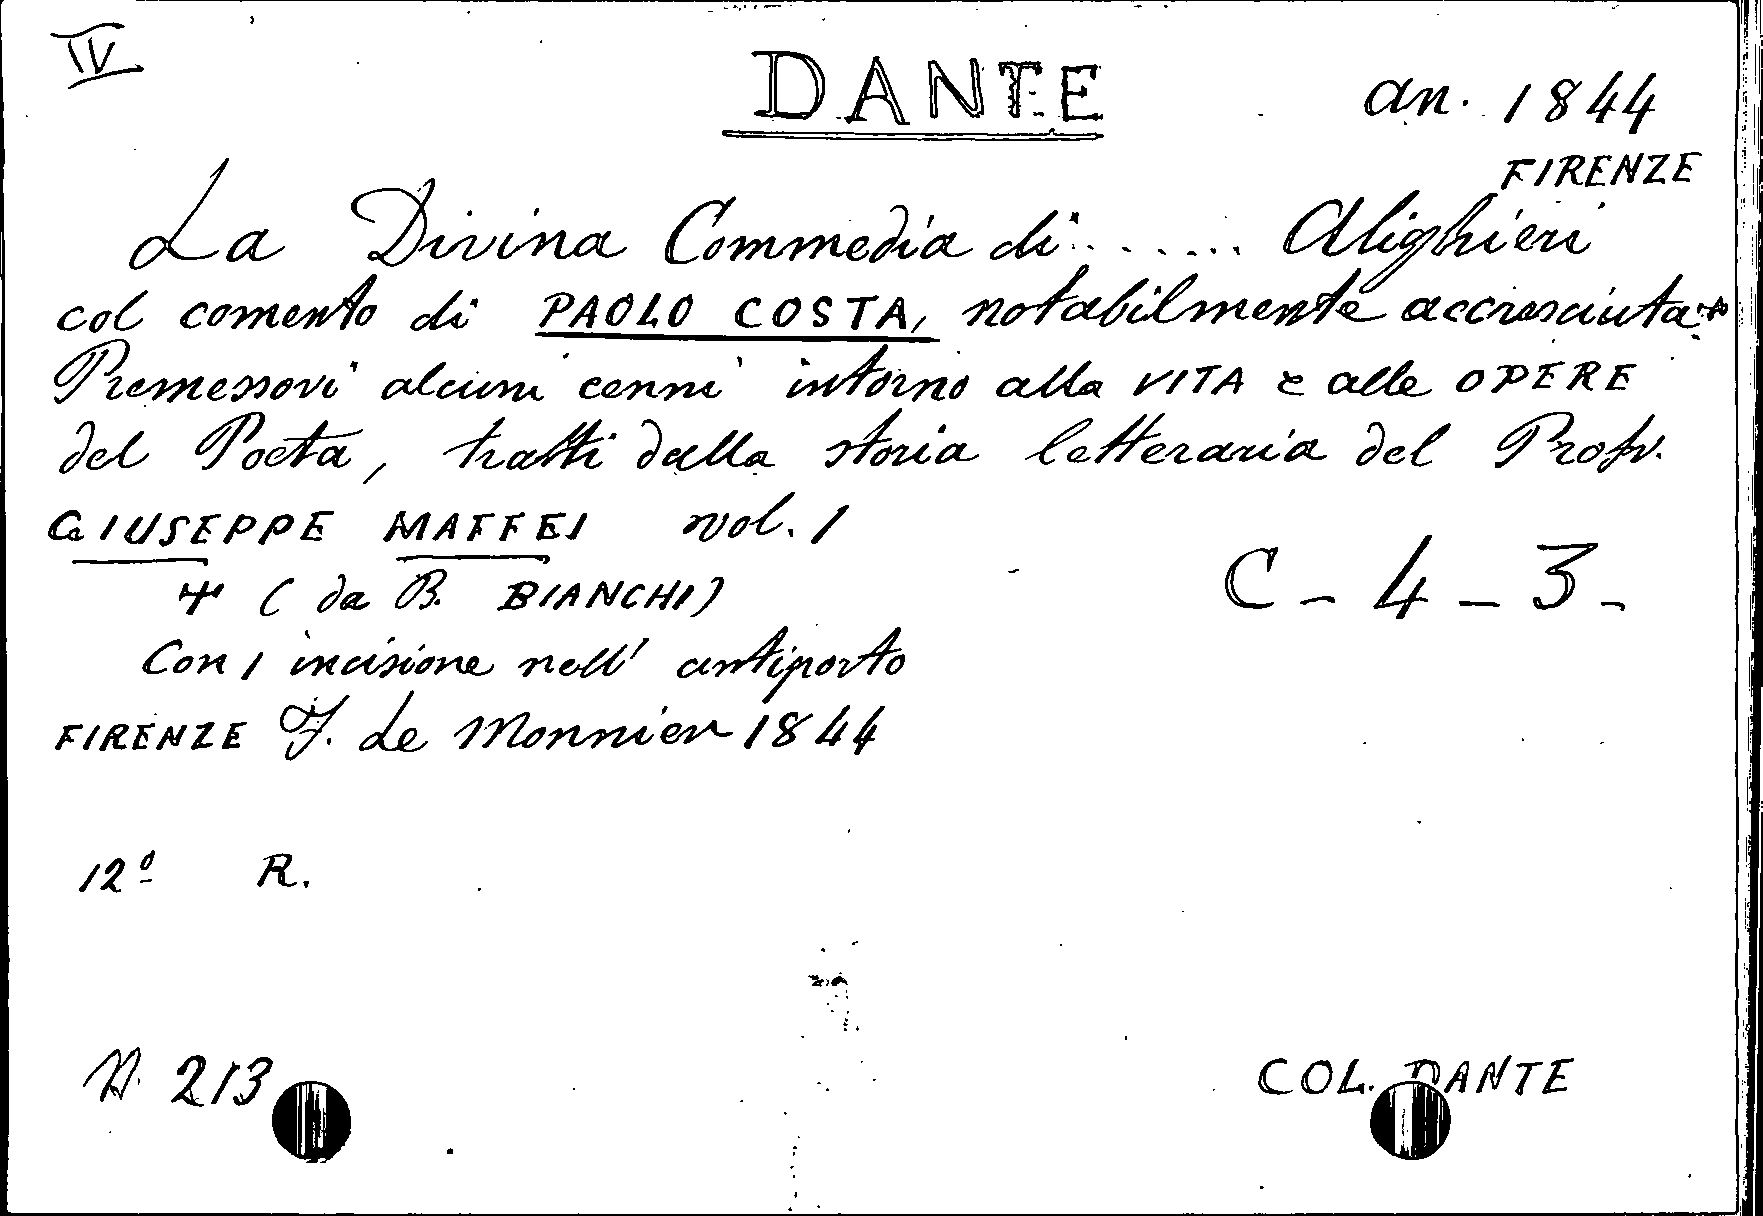 IV
DANTE
an. 1844
FIRENZE
La Divina Commedia di....... Alighieri
col comento di PAOLO COSTA, notabilmente accresciuta+
Premessovi alcuni cenni intorno alla VITA e alle OPERE
del Poeta, tratti dalla storia letteraria del Prof.
GIUSEPPE MAFFEI vol. 1
+ (da B. BIANCHI)
C - 4 - 3 -
Con 1 incisione nell' antiporto
FIRENZE F. Le Monnier 1844
12º R.
N. 213
COL. DANTE